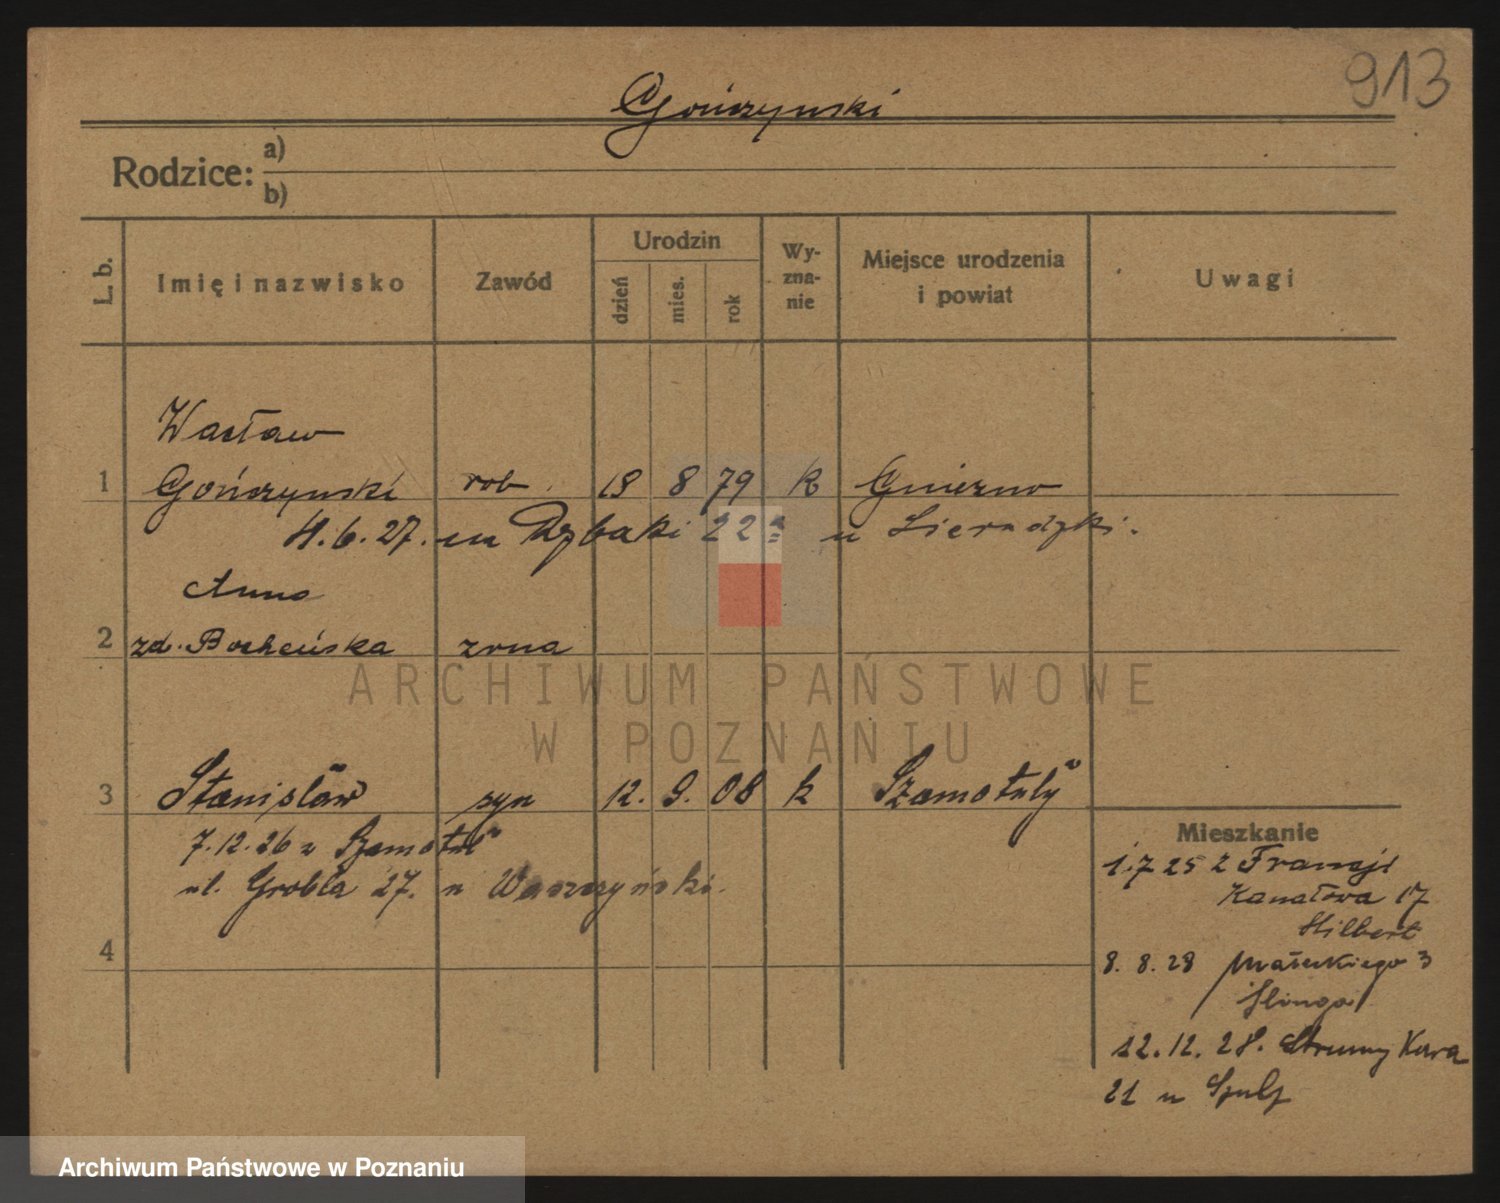 913
Gończynski
Rodzice: a)
b)
L. b.
Imię i nazwisko
Zawód
Urodzin
dzień
mies.
rok
Wy-
zna-
nie
Miejsce urodzenia
i powiat
Uwagi
Wacław
1 Gończynski rob. 19 8 79 k Gniezno
4.6.27. na Rybaki 22a u Sieradzki.
Anna
2 zd. Bocheńska zona
ARCHIWUM PAŃSTWOWE
W POZNANIU
3 Stanisław syn 12. 9. 08 k Szamotuły
7.12.26 z Szamotuł
ul. Grobla 27. u Waszczyński.
4
Mieszkanie
1.7 25 z Francji
Kanałowa 17
Hilbert
8. 8. 28 Małeckiego 3
12. 12. 28. Strumykowa
21 u Szulz
Archiwum Państwowe w Poznaniu